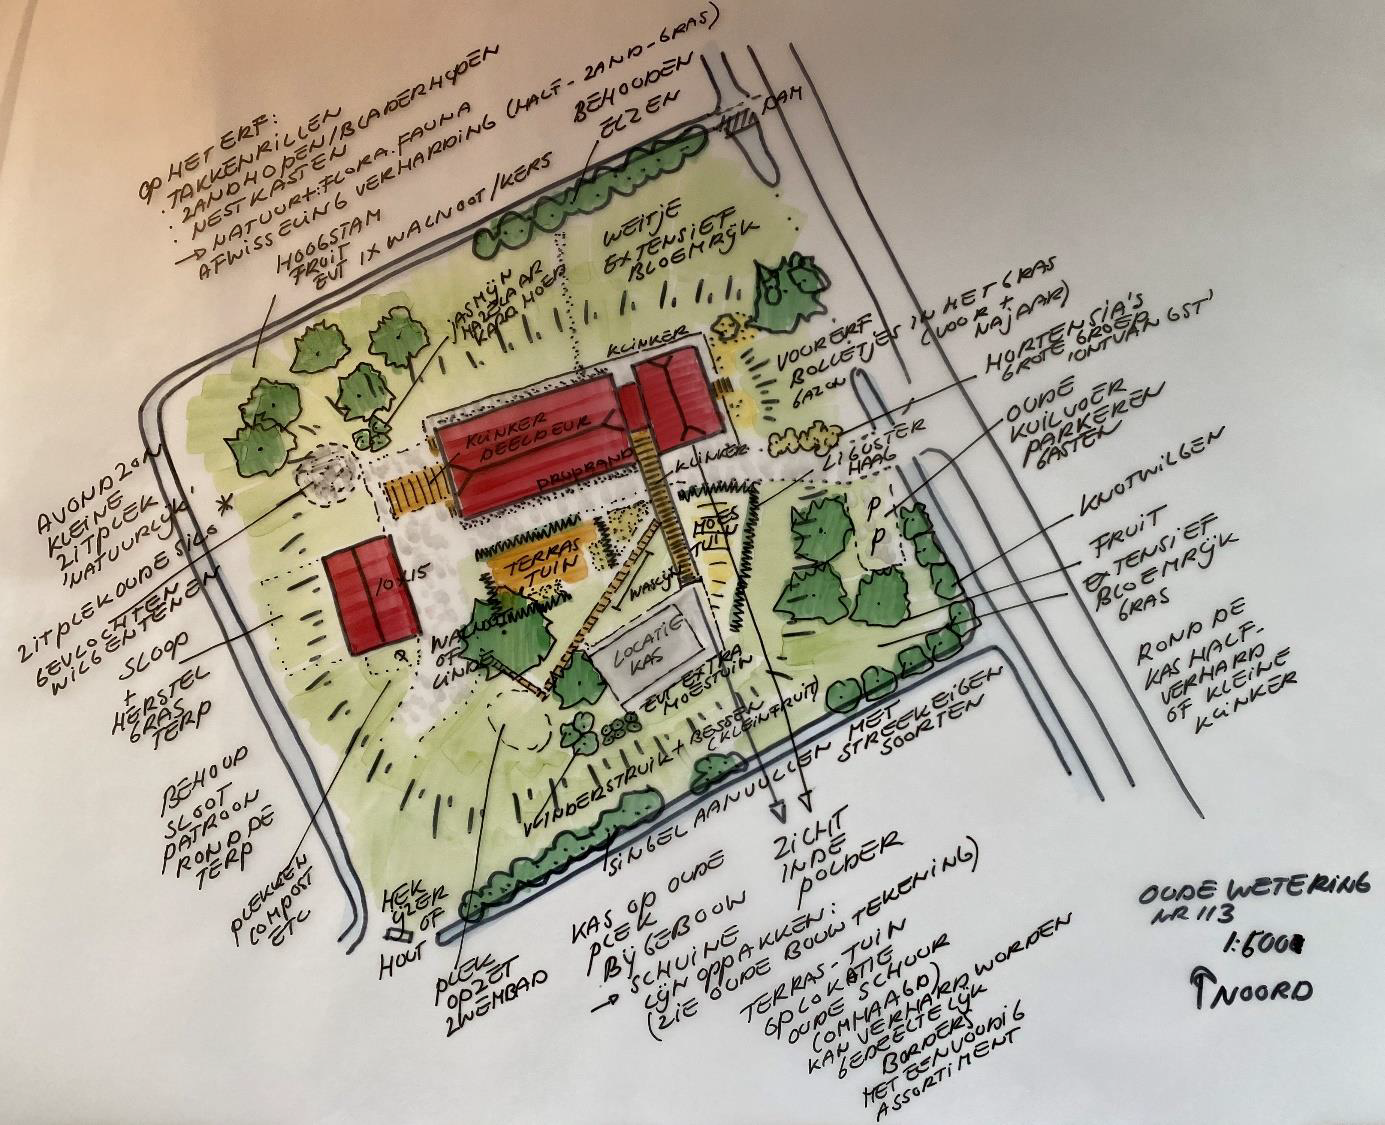 OP HET ERF:
· TAKKENRILLEN
· ZANDHOPEN/BLADERHOPEN
· NESTKASTEN
→ NATUUR+: FLORA. FAUNA
AFWISSELING VERHARDING (HALF-ZAND-GRAS)
HOOGSTAM
FRUIT
EVT 1X WALNOOT/KERS
BEHOUDEN
ELZEN
DAM
JASMIJN
HAZELAAR
KARDMOES
WEITJE
EXTENSIEF
BLOEMRIJK
KLINKER
VOORERF
BOLLETJES IN HET GRAS
GAZON
(VOOR +
NAJAAR)
HORTENSIA'S
GROTE GROEP
'ONTVANGST'
OUDE
KUILVOER
PARKEREN
GASTEN
KNOTWILGEN
FRUIT
EXTENSIEF
BLOEMRIJK
GRAS
ROND DE
KAS HALF-
VERHARD
OF KLEINE
KLINKER
KLINKER
DEELDEUR
DRUPRAND
KLINKER
LIGUSTER
HAAG
P
P
MOES
TUIN
TERRAS
TUIN
WASLIJN
10x15
WALNOOT
OF
LINDE
LOCATIE
KAS
EVT EXTRA
MOESTUIN
VLINDERSTRUIK + BESSEN
(KLEINFRUIT)
SINGEL AANVULLEN MET
STREEKEIGEN
SOORTEN
AVONDZON
KLEINE
ZITPLEK
'NATUURLIJK'
ZITPLEK OUDE SILO
GEVLOCHTEN
WILGENTENEN
SLOOP
+
HERSTEL
GRAS
TERP
BEHOUD
SLOOT
PATROON
ROND DE
TERP
PLEKKEN
COMPOST
ETC
HEK
IJZER
OF
HOUT
PLEK
OPZET
ZWEMBAD
KAS OP OUDE
PLEK
BIJGEBOUW
→ SCHUINE
LIJN OPPAKKEN:
(ZIE OUDE BOUWTEKENING)
ZICHT
IN DE
POLDER
TERRAS-TUIN
OP LOKATIE
OUDE SCHUUR
KAN VERHARD WORDEN
GEDEELTELIJK
BORDERS
MET EENVOUDIG
ASSORTIMENT
OUDE WETERING
NR 113
↑ NOORD